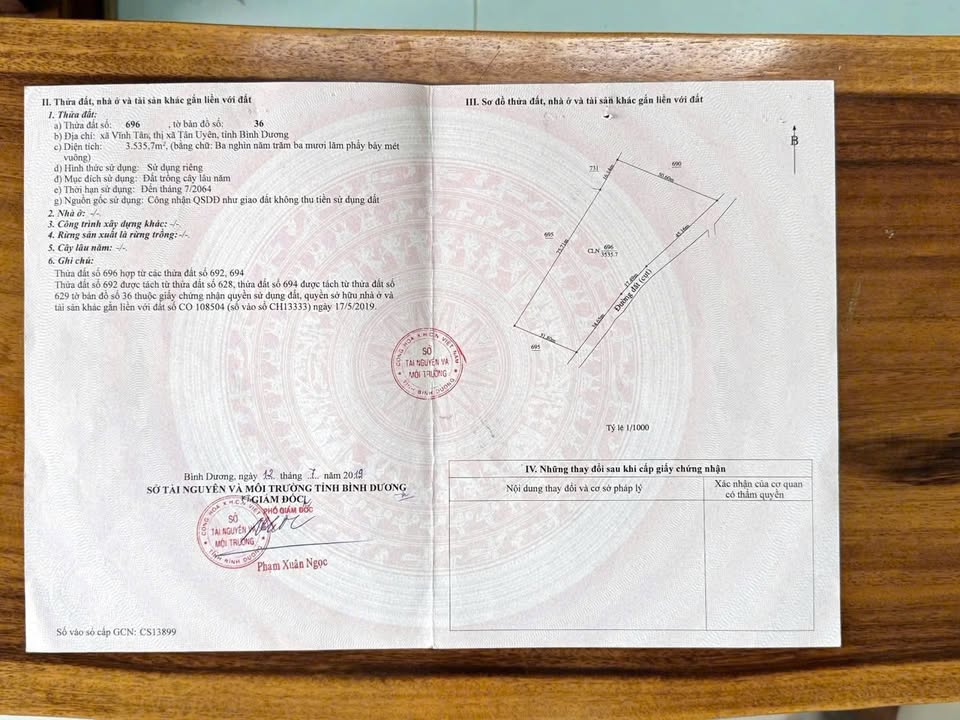 II. Thửa đất, nhà ở và tài sản khác gắn liền với đất
1. Thửa đất:
a) Thửa đất số: 696 , tờ bản đồ số: 36
b) Địa chỉ: xã Vĩnh Tân, thị xã Tân Uyên, tỉnh Bình Dương
c) Diện tích: 3.535,7m², (bằng chữ: Ba nghìn năm trăm ba mươi lăm phẩy bảy mét
vuông)
d) Hình thức sử dụng: Sử dụng riêng
đ) Mục đích sử dụng: Đất trồng cây lâu năm
e) Thời hạn sử dụng: Đến tháng 7/2064
g) Nguồn gốc sử dụng: Công nhận QSDĐ như giao đất không thu tiền sử dụng đất
2. Nhà ở: -/-
3. Công trình xây dựng khác: -/-
4. Rừng sản xuất là rừng trồng: -/-
5. Cây lâu năm: -/-
6. Ghi chú:
Thửa đất số 696 hợp từ các thửa đất số 692, 694
Thửa đất số 692 được tách từ thửa đất số 628, thửa đất số 694 được tách từ thửa đất số
629 tờ bản đồ số 36 thuộc giấy chứng nhận quyền sử dụng đất, quyền sở hữu nhà ở và
tài sản khác gắn liền với đất số CO 108504 (số vào sổ CH13333) ngày 17/5/2019.
CỘNG HÒA X.H.C.N VIỆT NAM
SỞ
TÀI NGUYÊN VÀ
MÔI TRƯỜNG
TỈNH BÌNH DƯƠNG
Bình Dương, ngày 12 tháng 7 năm 2019
SỞ TÀI NGUYÊN VÀ MÔI TRƯỜNG TỈNH BÌNH DƯƠNG
KT.GIÁM ĐỐC
PHÓ GIÁM ĐỐC
SỞ
TÀI NGUYÊN VÀ
MÔI TRƯỜNG
TỈNH BÌNH DƯƠNG
Phạm Xuân Ngọc
Số vào sổ cấp GCN: CS13899
III. Sơ đồ thửa đất, nhà ở và tài sản khác gắn liền với đất
B
731
690
50.60m
695
CLN
696
3535.7
Đường đất (cụt)
695
Tỷ lệ 1/1000
IV. Những thay đổi sau khi cấp giấy chứng nhận
Nội dung thay đổi và cơ sở pháp lý
Xác nhận của cơ quan
có thẩm quyền